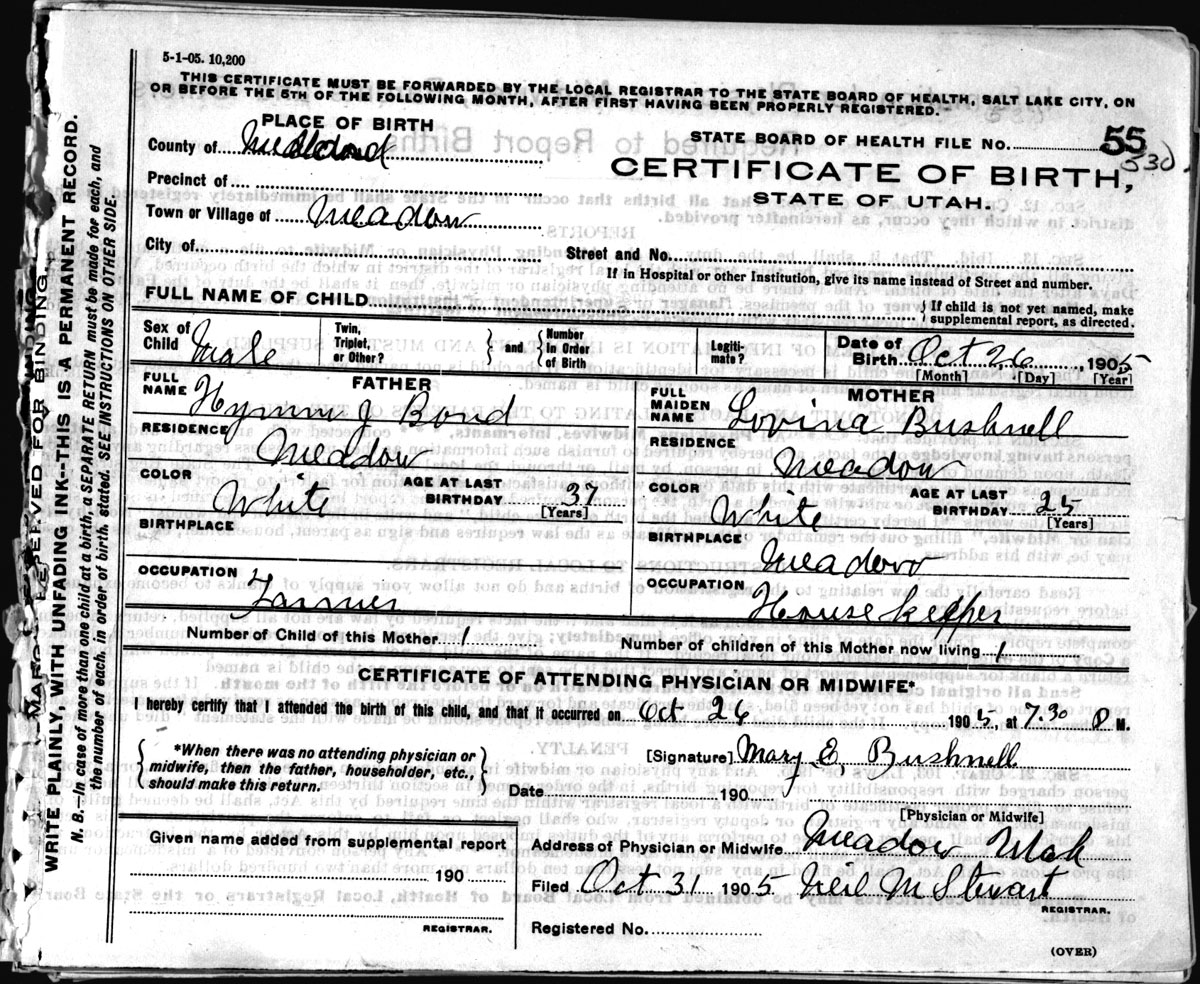 5-1-05. 10,200
THIS CERTIFICATE MUST BE FORWARDED BY THE LOCAL REGISTRAR TO THE STATE BOARD OF HEALTH, SALT LAKE CITY, ON
OR BEFORE THE 5TH OF THE FOLLOWING MONTH, AFTER FIRST HAVING BEEN PROPERLY REGISTERED.
PLACE OF BIRTH
County of
STATE BOARD OF HEALTH FILE No. 55
530
CERTIFICATE OF BIRTH,
STATE OF UTAH.
Precinct of
Town or Village of Meadow
City of
Street and No.
If in Hospital or other Institution, give its name instead of Street and number.
FULL NAME OF CHILD
{ If child is not yet named, make
supplemental report, as directed.
Sex of Child Male
Twin, Triplet, or Other? } and { Number In Order of Birth
Legiti-mate?
Date of Birth Oct 26, 1905
[Month] [Day] [Year]
FATHER
FULL NAME Hyrum J Bond
RESIDENCE Meadow
COLOR White AGE AT LAST BIRTHDAY 37
[Years]
BIRTHPLACE
OCCUPATION Farmer
MOTHER
FULL MAIDEN NAME Lovina Bushnell
RESIDENCE Meadow
COLOR White AGE AT LAST BIRTHDAY 25
[Years]
BIRTHPLACE Meadow
OCCUPATION House keeper
Number of Child of this Mother 1
Number of children of this Mother now living 1
CERTIFICATE OF ATTENDING PHYSICIAN OR MIDWIFE*
I hereby certify that I attended the birth of this child, and that it occurred on Oct 26 1905, at 7.30 P M.
{ *When there was no attending physician or
midwife, then the father, householder, etc.,
should make this return. }
[Signature] Mary E. Bushnell
Date 190
[Physician or Midwife]
Given name added from supplemental report
190
REGISTRAR.
Address of Physician or Midwife Meadow Utah
Filed Oct 31 1905 Neil M Stewart
REGISTRAR.
Registered No.
(OVER)
MARGIN RESERVED FOR BINDING
WRITE PLAINLY, WITH UNFADING INK--THIS IS A PERMANENT RECORD.
N. B.--In case of more than one child at a birth, a SEPARATE RETURN must be made for each, and
the number of each, in order of birth, stated. SEE INSTRUCTIONS ON OTHER SIDE.